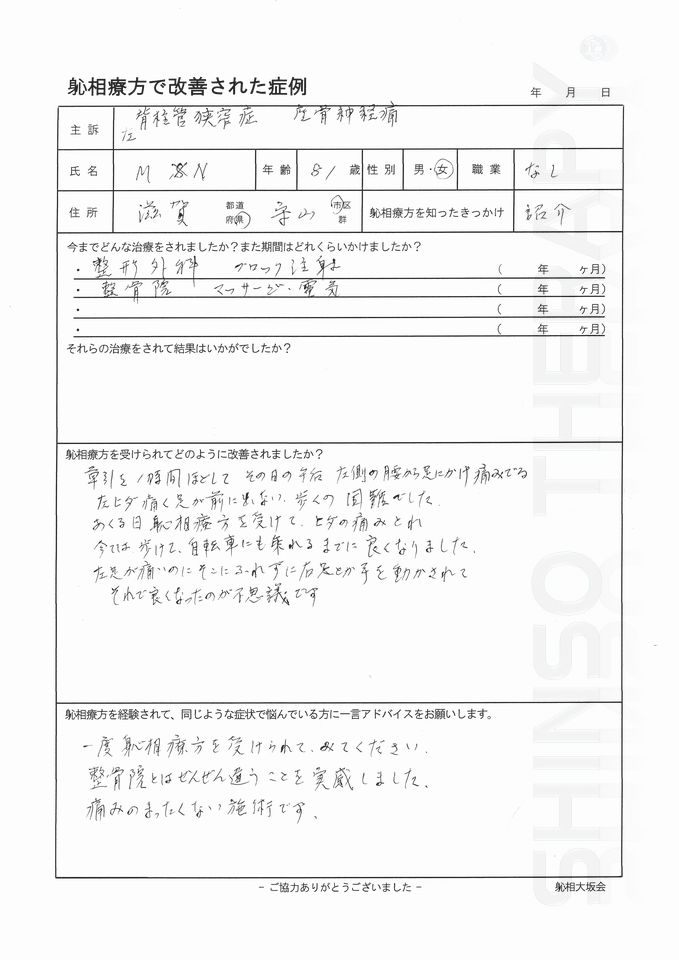 躰相療方で改善された症例
年 月 日
主訴 脊柱管狭窄症 座骨神経痛
左
氏名 M N 年齢 81 歳 性別 男・女 職業 なし
住所 滋賀 都道府県 守山 市区群 躰相療方を知ったきっかけ 紹介
今までどんな治療をされましたか?また期間はどれくらいかけましたか?
・ 整形外科 ブロック注射 ( 年 ヶ月)
・ 整骨院 マッサージ・電気 ( 年 ヶ月)
・ ( 年 ヶ月)
・ ( 年 ヶ月)
それらの治療をされて結果はいかがでしたか?
躰相療方を受けられてどのように改善されましたか?
草引を1時間ほどして その日の午后 左側の腰から足にかけ痛みでる
左ヒザ痛く足が前に出ない、歩くの困難でした。
あくる日躰相療方を受けて、ヒザの痛みとれ
今では歩けて、自転車にも乗れるまでに良くなりました。
左足が痛いのにそこにふれずに右足とか手を動かされて
それで良くなったのが不思議です
躰相療方を経験されて、同じような症状で悩んでいる方に一言アドバイスをお願いします。
一度躰相療方を受けられて、みてください。
整骨院とはぜんぜん違うことを実感しました。
痛みのまったくない施術です。
- ご協力ありがとうございました -
躰相大坂会
SHINSO THERAPY